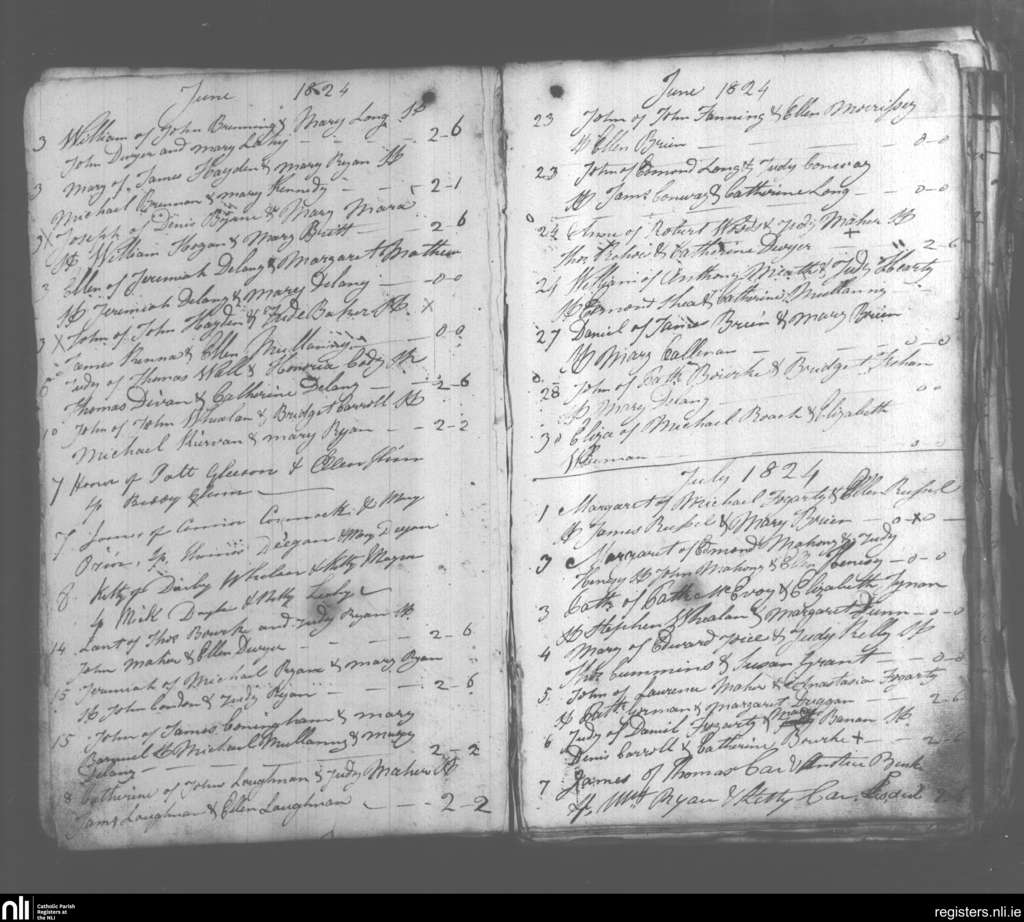 June 1824
3 William of John Brenning & Mary Long Sp
John Dwyer and Mary Lahy - - - 2-6
3 Mary of James Hayden & Mary Ryan Sp
Michael Brennan & Mary Kennedy - - 2-1
3 X Joseph of Denis Byrne & Mary Mara
Sp William Hogan & Mary Britt - - 2 6
Ellen of Jeremiah Delany & Margaret Mathew
Sp Jeremiah Delany & Mary Delany - -0-0
3 X John of John Hayden & Jude Baker Sp X
James Kenna & Ellen Mullany - 0 0
6 Judy of Thomas Wall & Honoria Cody Sp
Thomas & Catherine Delany - - 2-6
10 John of John Whealan & Bridget Carroll Sp
Michael Kirwan & Mary Ryan - - 2-2
7 Honor of Patt Gleeson & Ellen
Sp Bessy
7 James of Connor Cormack & Mary
Brien, Sp Deegan & Mary Deegan
8 Kitty of Darby Whelan & Kitty Magan
Sp Mick & Kitty
14 of Thos Bourke and Judy Ryan Sp
John Maher & Ellen Dwyer - - - 2-6
15 Jeremiah of Michael Ryan & Mary Ryan
Sp John Condon & Judy Ryan - - - 2-6
15 John of James Coningham & Mary
Sp Michael Mullanny & Mary
Delany - - - 2-2
8 Catherine of John Loughman & Judy Maher Sp
James Loughman & Ellen Loughman - - - 2-2
June 1824
23 John of John Fanning & Ellen Morrissey
Sp Ellen Brien - - 0-0
23 John of Edmond Long & Judy Conway
Sp James Conway & Catherine Long - - 0-0
24 of Robert & Judy Maher Sp
Thos & Catherine Dwyer - - 2-6
24 William of Anthony Meath & Judy Hearty
Sp Edmond Shea & Catherine Mullanny -
27 Daniel of James Brien & Mary Brien
Sp Mary Callinan - - 0-0
28 John of Patk Bourke & Bridget
Sp Mary Delany - - 0 0
30 Eliza of Michael Roach & Elizabeth
- 0 0
July 1824
1 Margaret of Michael Fogarty & Ellen Russel
Sp James Russel & Mary Brien - 0 X 0
3 Margaret of Edmond Mahony & Judy
Henesy Sp John Mahony & Ellen - 0-0
3 Cath of Patk McEvoy & Elizabeth Tynan
Sp Stephen Whealan & Margaret Dunn - 0-0
4 Mary of Edward Joice & Judy Kelly Sp
Thos Cummins & Susan Grant - - 0-0
5 John of Laurence Maher & Anastasia Fogarty
Sp Patk Gorman & Margaret Deegan - - 2-6
6 Judy of Daniel Fogarty & Mary Banan Sp
Denis Carroll & Catherine Bourke + -
7 James of Thomas Car &
Sp Ryan & Kitty Car.
nli
Catholic Parish
Registers at
the NLI
registers.nli.ie